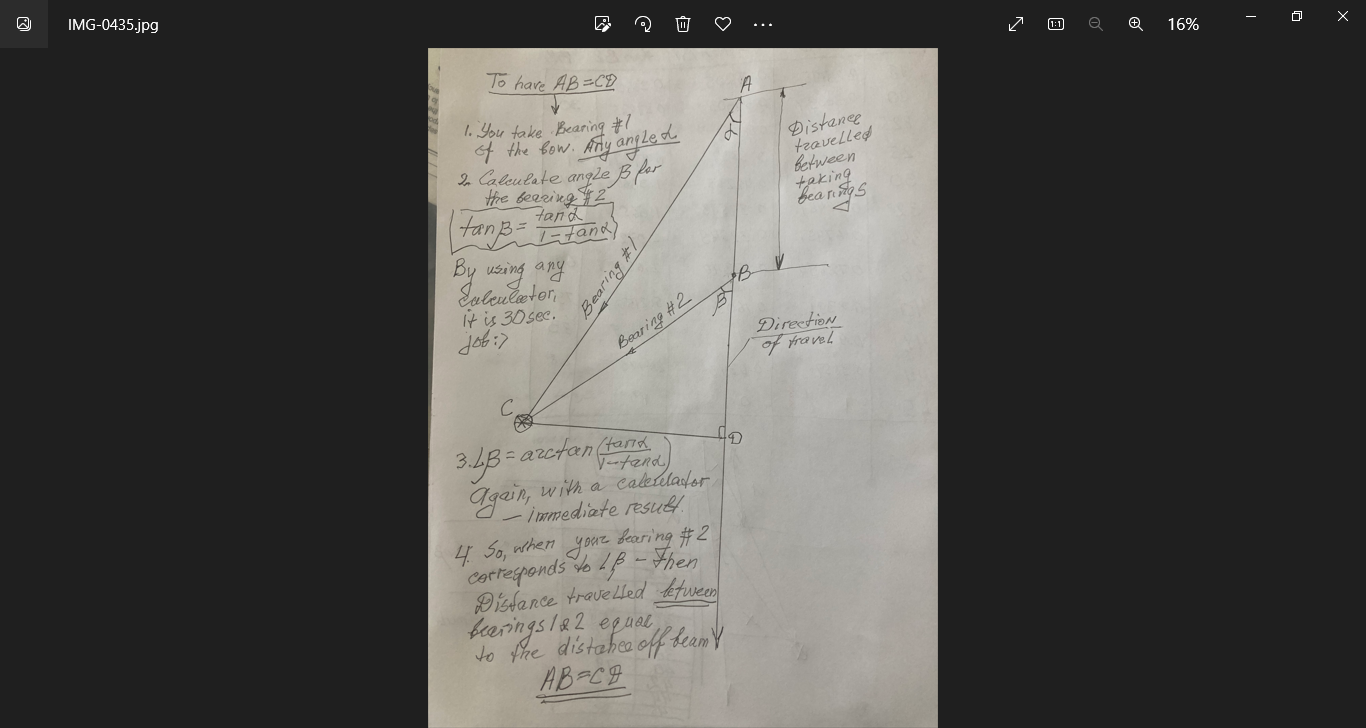 IMG-0435.jpg
16%
To have AB=CD
1. You take Bearing #1
of the bow. Any angle α
2. Calculate angle β for
the bearing #2
tanβ = tanα / 1-tanα
By using any
calculator,
it is 30 sec.
job:)
A
α
Distance
travelled
between
taking
bearings
Bearing #1
B
β
Bearing #2
Direction
of travel
C
D
3. ∠β = arctan (tanα / 1-tanα)
Again, with a calculator
— immediate result.
4. So, when your bearing #2
corresponds to ∠β – Then
Distance travelled between
bearings 1&2 equal
to the distance off beam
AB=CD